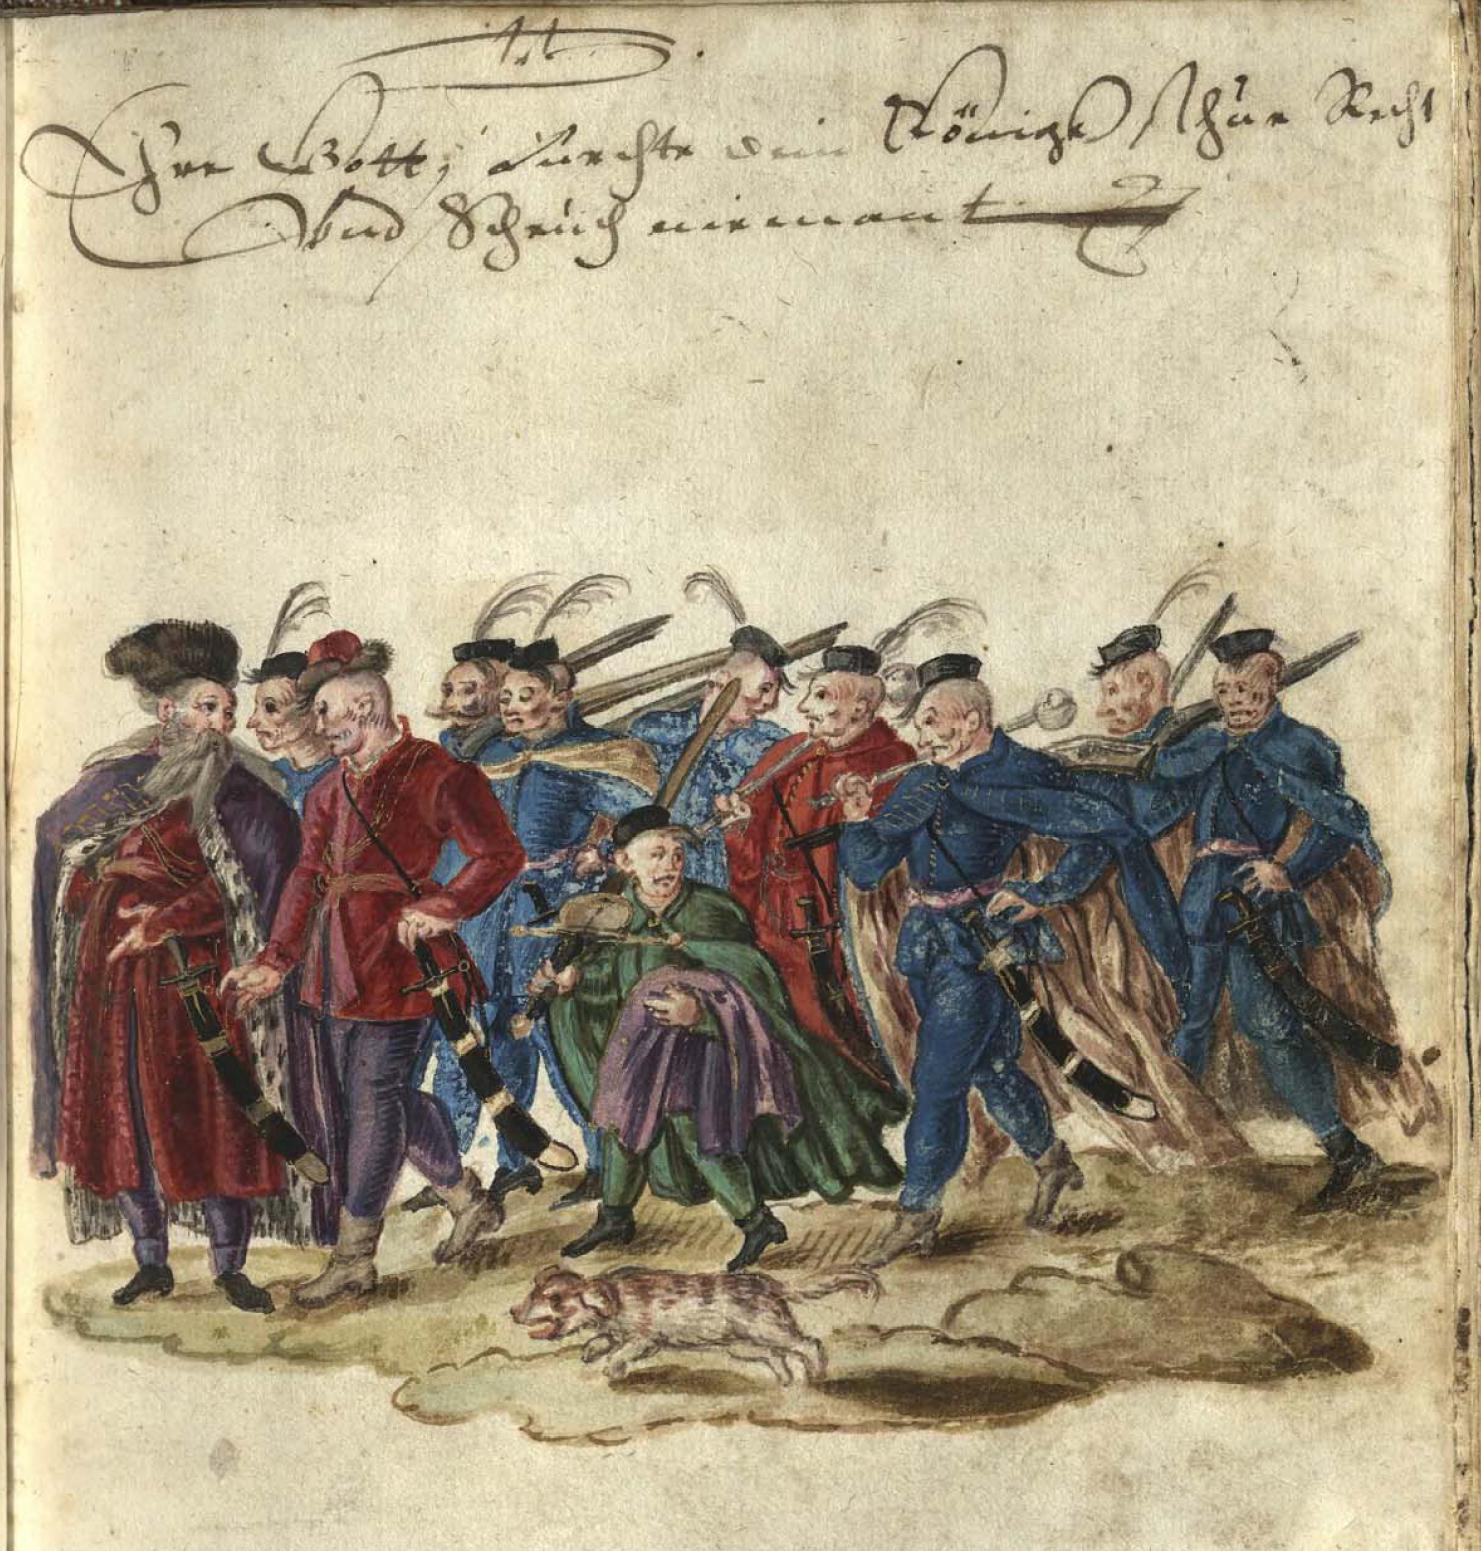 Ehre Gott, Furchte dein Könige, Thue Recht
Vnd Scheuch niemant